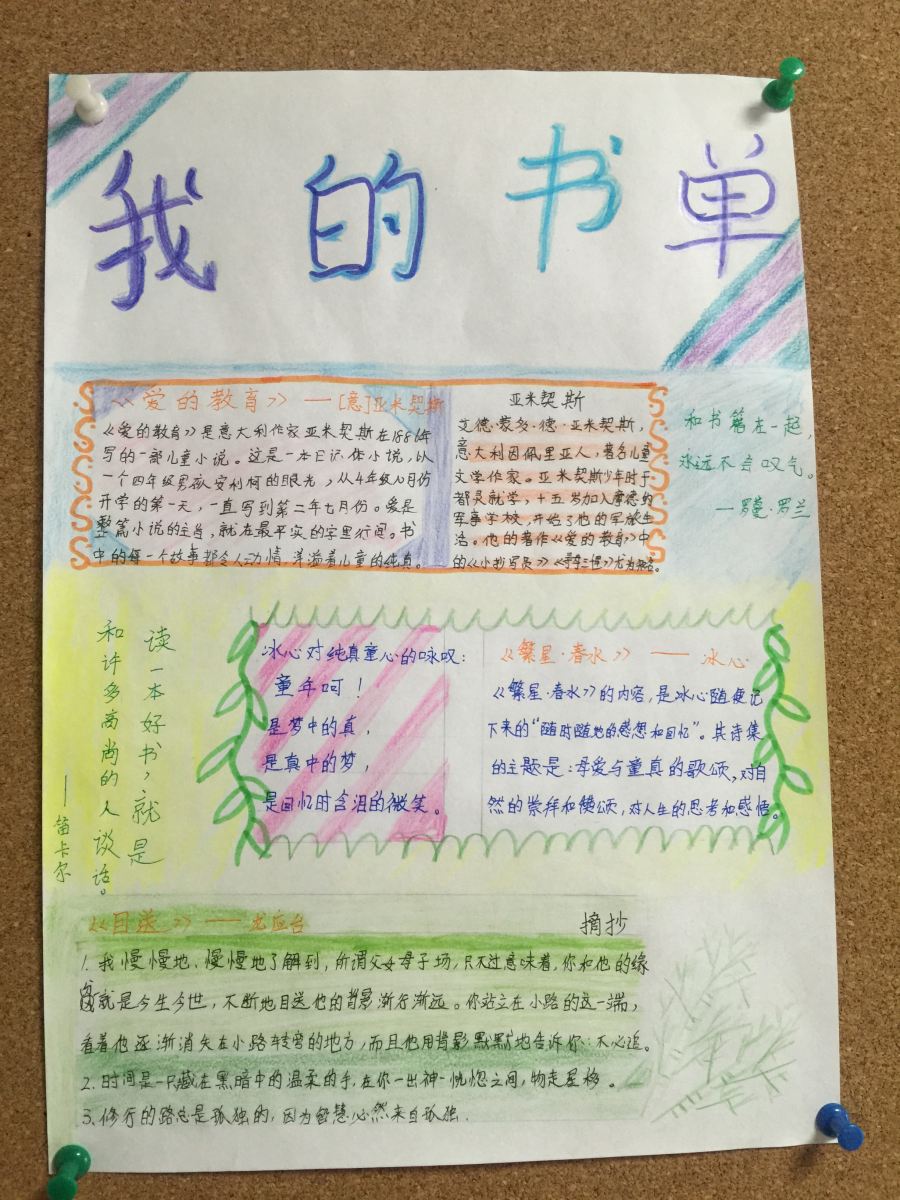 我的书单
《爱的教育》—[意]亚米契斯
《爱的教育》是意大利作家亚米契斯在1886年
写的一部儿童小说。这是一本日记体小说，以
一个四年级男孩安利柯的眼光，从4年级10月份
开学的第一天，一直写到第二年七月份。爱是
整篇小说的主旨，就在最平实的字里行间。书
中的每一个故事都令人动情，洋溢着儿童的纯真。
亚米契斯
艾德·蒙多·德·亚米契斯，
意大利因佩里亚人，著名儿童
文学作家。亚米契斯少年时于
都灵就学，十五岁加入摩德纳
军事学校，开始了他的军旅生
活。他的著作《爱的教育》中
的《小抄写员》《寻母三千里》尤为著名。
和书籍在一起，
永远不会叹气。
—罗曼·罗兰
读一本好书，就是
和许多高尚的人谈话。
——笛卡尔
冰心对纯真童心的咏叹：
童年呵！
是梦中的真，
是真中的梦，
是回忆时含泪的微笑。
《繁星·春水》——冰心
《繁星·春水》的内容，是冰心随便记
下来的“随时随地的感想和回忆”。其诗集
的主题是：母爱与童真的歌颂，对自
然的崇拜和赞颂，对人生的思考和感悟。
《目送》——龙应台
摘抄
1. 我慢慢地、慢慢地了解到，所谓父女母子一场，只不过意味着，你和他的缘
分就是今生今世，不断地目送他的背影渐行渐远。你站立在小路的这一端，
看着他逐渐消失在小路转弯的地方，而且他用背影默默地告诉你：不必追。
2. 时间是一只藏在黑暗中的温柔的手，在你一出神一恍惚之间，物走星移。
3. 修行的路总是孤独的，因为智慧必然来自孤独.